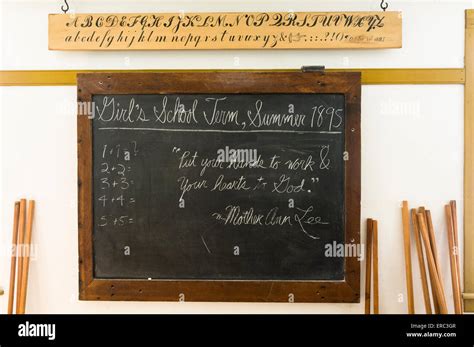 ABCDEFGHIJKLMNOPQRSTUVWXYZ
abcdefghijklmnopqrstuvwxyz
Girl's School Term, Summer 1895
1+1 ?
2+2
3+3
4+4
5+5
"Put your Hands to work &
Your hearts to God."
Mother Ann Lee
alamy
Image ID: ERC3GR
www.alamy.com